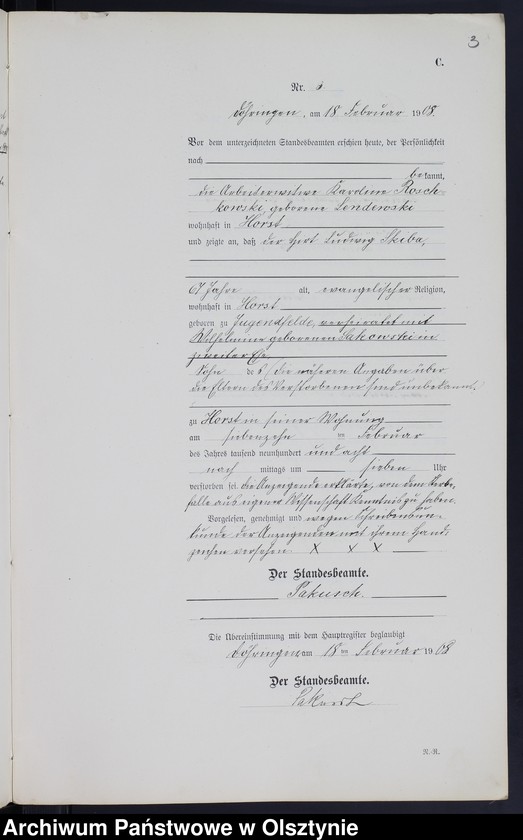 3
C.
Nr. 3
Döhringen, am 18 Februar 1908.
Vor dem unterzeichneten Standesbeamten erschien heute, der Persönlichkeit
nach
bekannt,
die Arbeiterwitwe Karoline Rosch-
kowski, geborene Lendewski
wohnhaft in Horst
und zeigte an, daß der Hirt Ludwig Skiba,
67 Jahre alt, evangelischer Religion,
wohnhaft in Horst
geboren zu Jugendfelde, verheiratet mit
Wilhelmine geborenen Sakowski in
zweiter Ehe
Sohn des die näheren Angaben über
die Eltern des Verstorbenen sind unbekannt.
zu Horst in seiner Wohnung
am siebenzehn ten Februar
des Jahres tausend neunhundert und acht
nach mittags um sieben Uhr
verstorben sei. die Anzeigende erklärte, von dem Sterbe-
falle aus eigener Wissenschaft Kenntnis zu haben.
Vorgelesen, genehmigt und wegen Schreibensun-
kunde der Anzeigenden mit ihrem Hand-
zeichen versehen X X X
Der Standesbeamte.
Pakusch.
Die Übereinstimmung mit dem Hauptregister beglaubigt
Döhringen, am 18 ten Februar 1908
Der Standesbeamte.
Pakusch
N.-R.
Archiwum Państwowe w Olsztynie